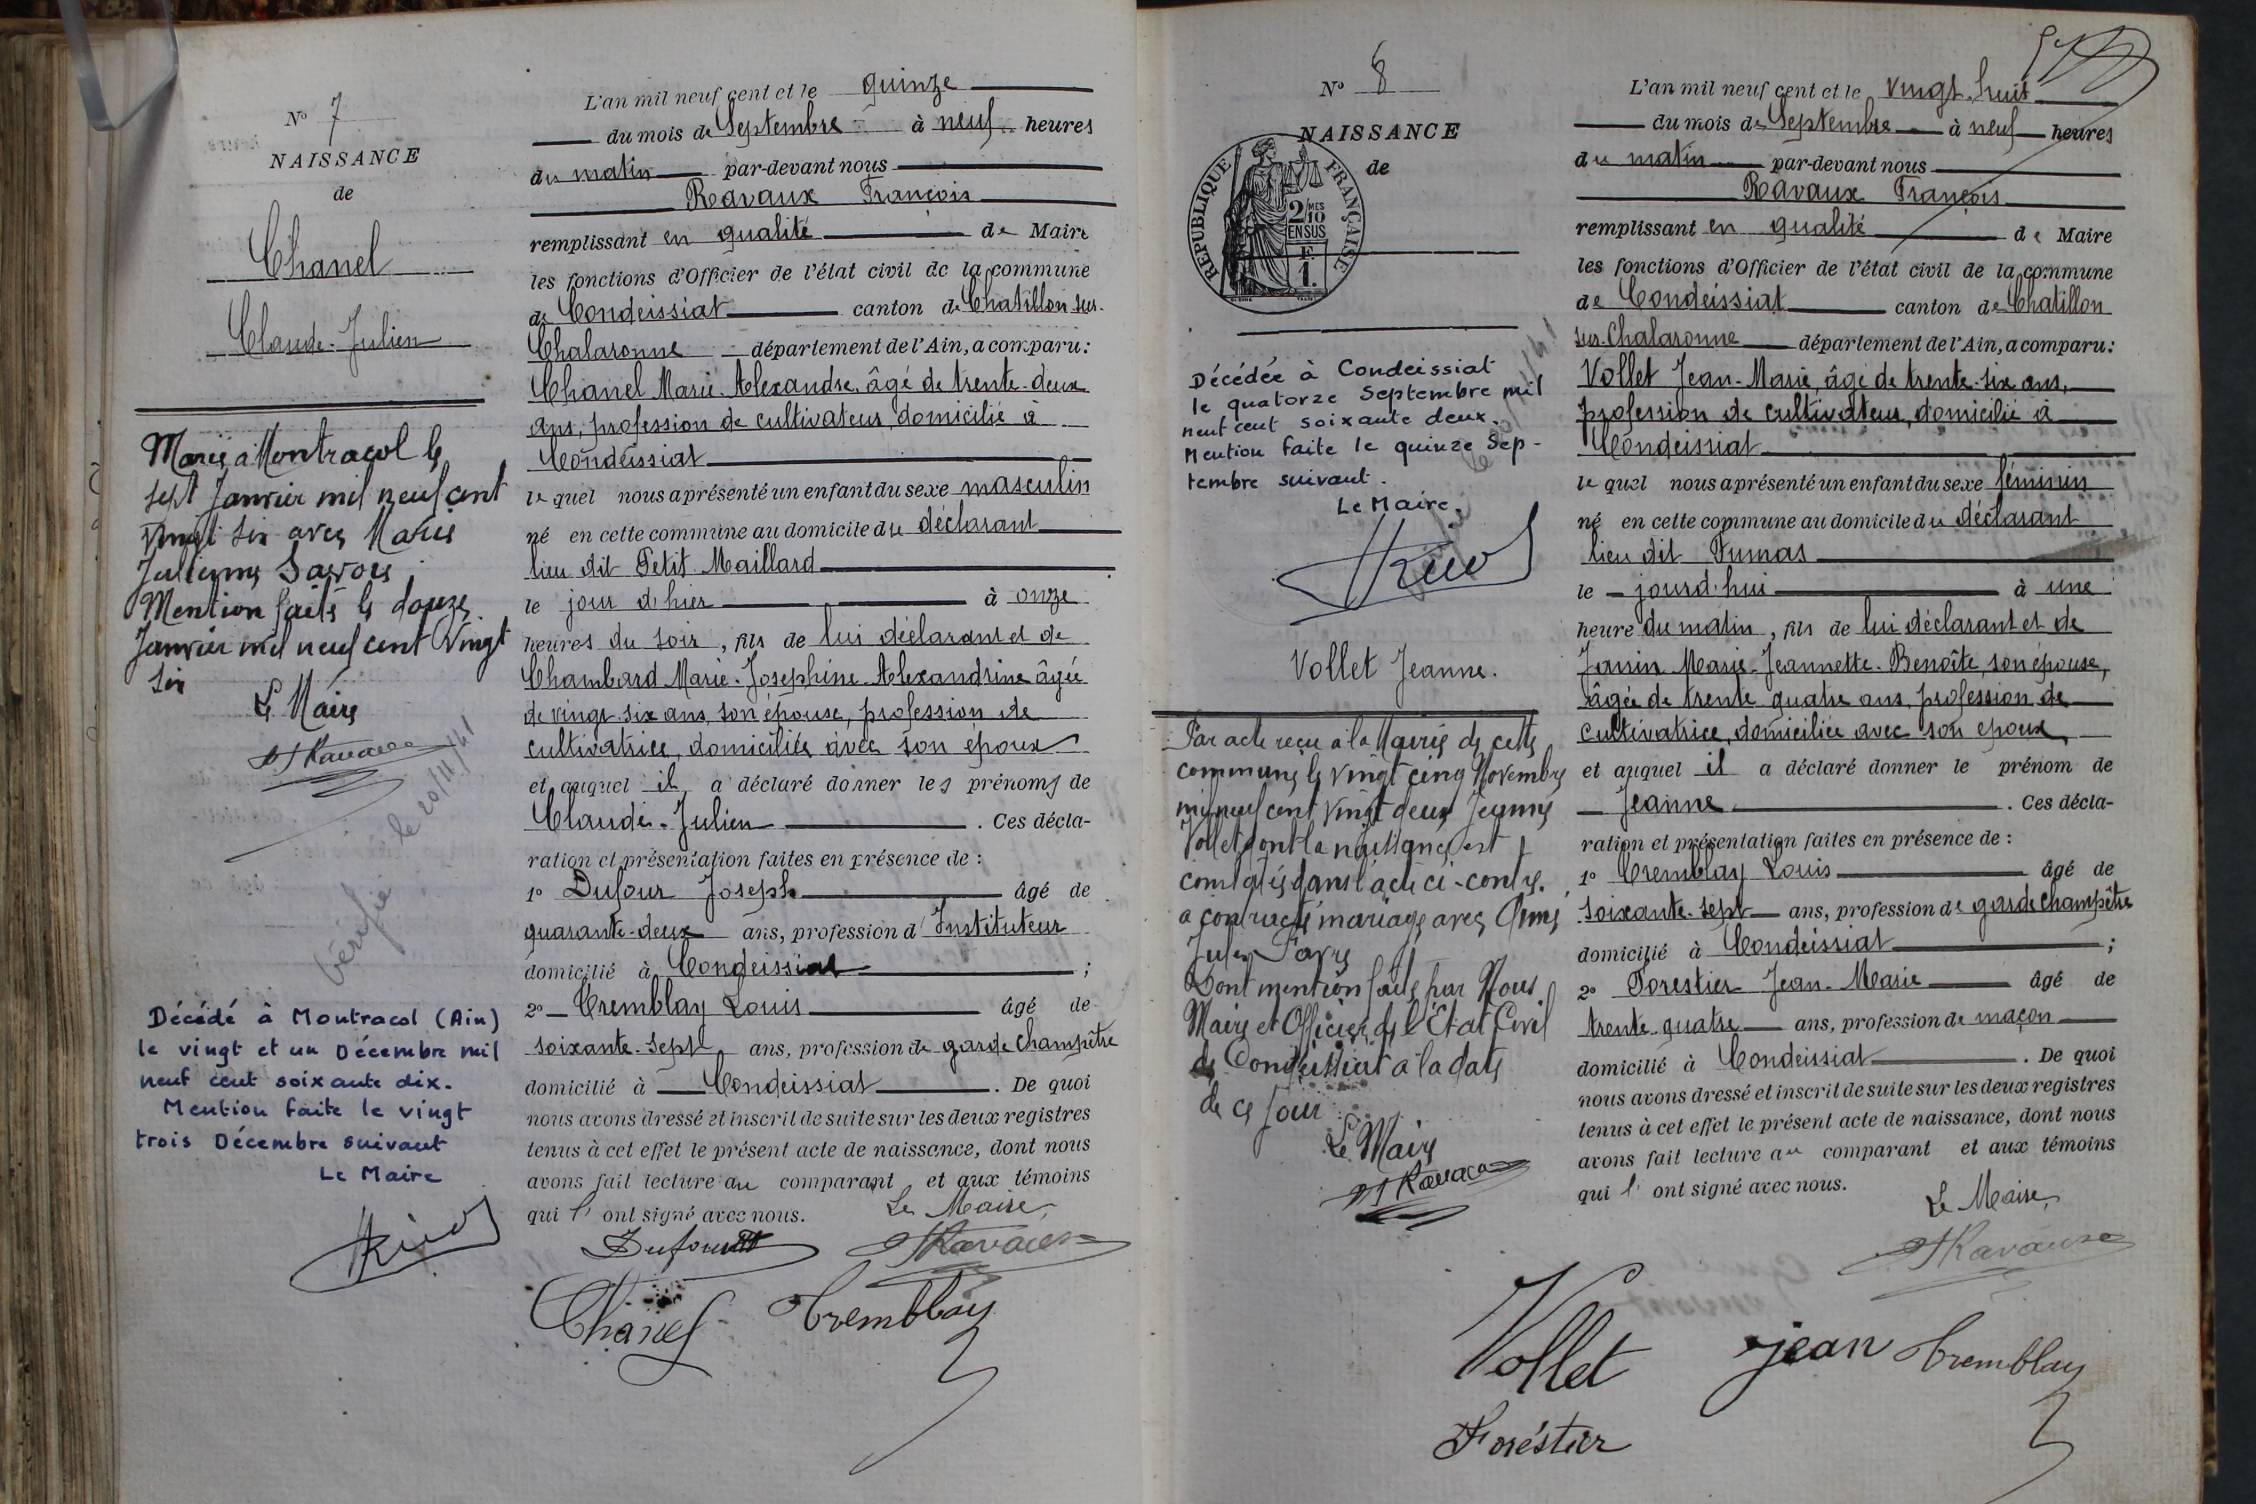 N° 7
NAISSANCE
de
Chanel
Claude-Julien
Marié à Montracol le
sept Janvier mil neuf cent
vingt six avec Marie
Julienne Savoie
Mention faite le douze
Janvier mil neuf cent vingt
six
Le Maire
Ravaux
Vérifié le 20/11/41
Décédé à Montracol (Ain)
le vingt et un Décembre mil
neuf cent soixante dix.
Mention faite le vingt
trois Décembre suivant
Le Maire
L'an mil neuf cent et le quinze
du mois de Septembre à neuf heures
du matin par-devant nous
Ravaux François
remplissant en qualité de Maire
les fonctions d'Officier de l'état civil de la commune
de Condeissiat canton de Chatillon-sur-
Chalaronne département de l'Ain, a comparu:
Chanel Marie-Alexandre, âgé de trente-deux
ans, profession de cultivateur, domicilié à
Condeissiat
le quel nous a présenté un enfant du sexe masculin
né en cette commune au domicile du déclarant
lieu dit Petit Maillard
le jour d'hier à onze
heures du soir, fils de lui déclarant et de
Chambard Marie-Josephine-Alexandrine âgée
de vingt-six ans, son épouse, profession de
cultivatrice, domiciliée avec son époux
et auquel il a déclaré donner les prénoms de
Claude-Julien . Ces décla-
ration et présentation faites en présence de :
1° Dufour Joseph âgé de
quarante-deux ans, profession d'Instituteur
domicilié à Condeissiat ;
2° Tremblay Louis âgé de
soixante-sept ans, profession de garde champêtre
domicilié à Condeissiat . De quoi
nous avons dressé et inscrit de suite sur les deux registres
tenus à cet effet le présent acte de naissance, dont nous
avons fait lecture au comparant et aux témoins
qui l' ont signé avec nous.
Le Maire,
Dufour Ravaux
Chanel Tremblay
N° 8
NAISSANCE
de
RÉPUBLIQUE FRANÇAISE
2/10 MES
EN SUS
F
1.
Décédée à Condeissiat
le quatorze Septembre mil
neuf cent soixante deux.
Mention faite le quinze Sep-
tembre suivant.
Le Maire.
Vollet Jeanne.
Par acte reçu à la Mairie de cette
commune le vingt cinq Novembre
mil neuf cent vingt deux Jeanne
Vollet dont la naissance est
constatée dans l'acte ci-contre.
a contracté mariage avec Aimé
Jules Favre
Dont mention faite par Nous
Maire et Officier de l'Etat Civil
de Condeissiat à la date
de ce jour
Le Maire
Ravaux
L'an mil neuf cent et le vingt-huit
du mois de Septembre à neuf heures
du matin par-devant nous
Ravaux François
remplissant en qualité de Maire
les fonctions d'Officier de l'état civil de la commune
de Condeissiat canton de Chatillon
sur-Chalaronne département de l'Ain, a comparu:
Vollet Jean-Marie, âgé de trente-six ans,
profession de cultivateur, domicilié à
Condeissiat
le quel nous a présenté un enfant du sexe féminin
né en cette commune au domicile du déclarant
lieu dit Fumas
le jourd'hui à une
heure du matin, fils de lui déclarant et de
Janin Marie-Jeannette-Benoîte, son épouse,
âgée de trente quatre ans, profession de
cultivatrice, domiciliée avec son époux,
et auquel il a déclaré donner le prénom de
Jeanne . Ces décla-
ration et présentation faites en présence de :
1° Tremblay Louis âgé de
soixante-sept ans, profession de garde champêtre
domicilié à Condeissiat ;
2° Forestier Jean-Marie âgé de
trente-quatre ans, profession de maçon
domicilié à Condeissiat . De quoi
nous avons dressé et inscrit de suite sur les deux registres
tenus à cet effet le présent acte de naissance, dont nous
avons fait lecture au comparant et aux témoins
qui l' ont signé avec nous.
Le Maire,
Ravaux
Vollet jean Tremblay
Forestier